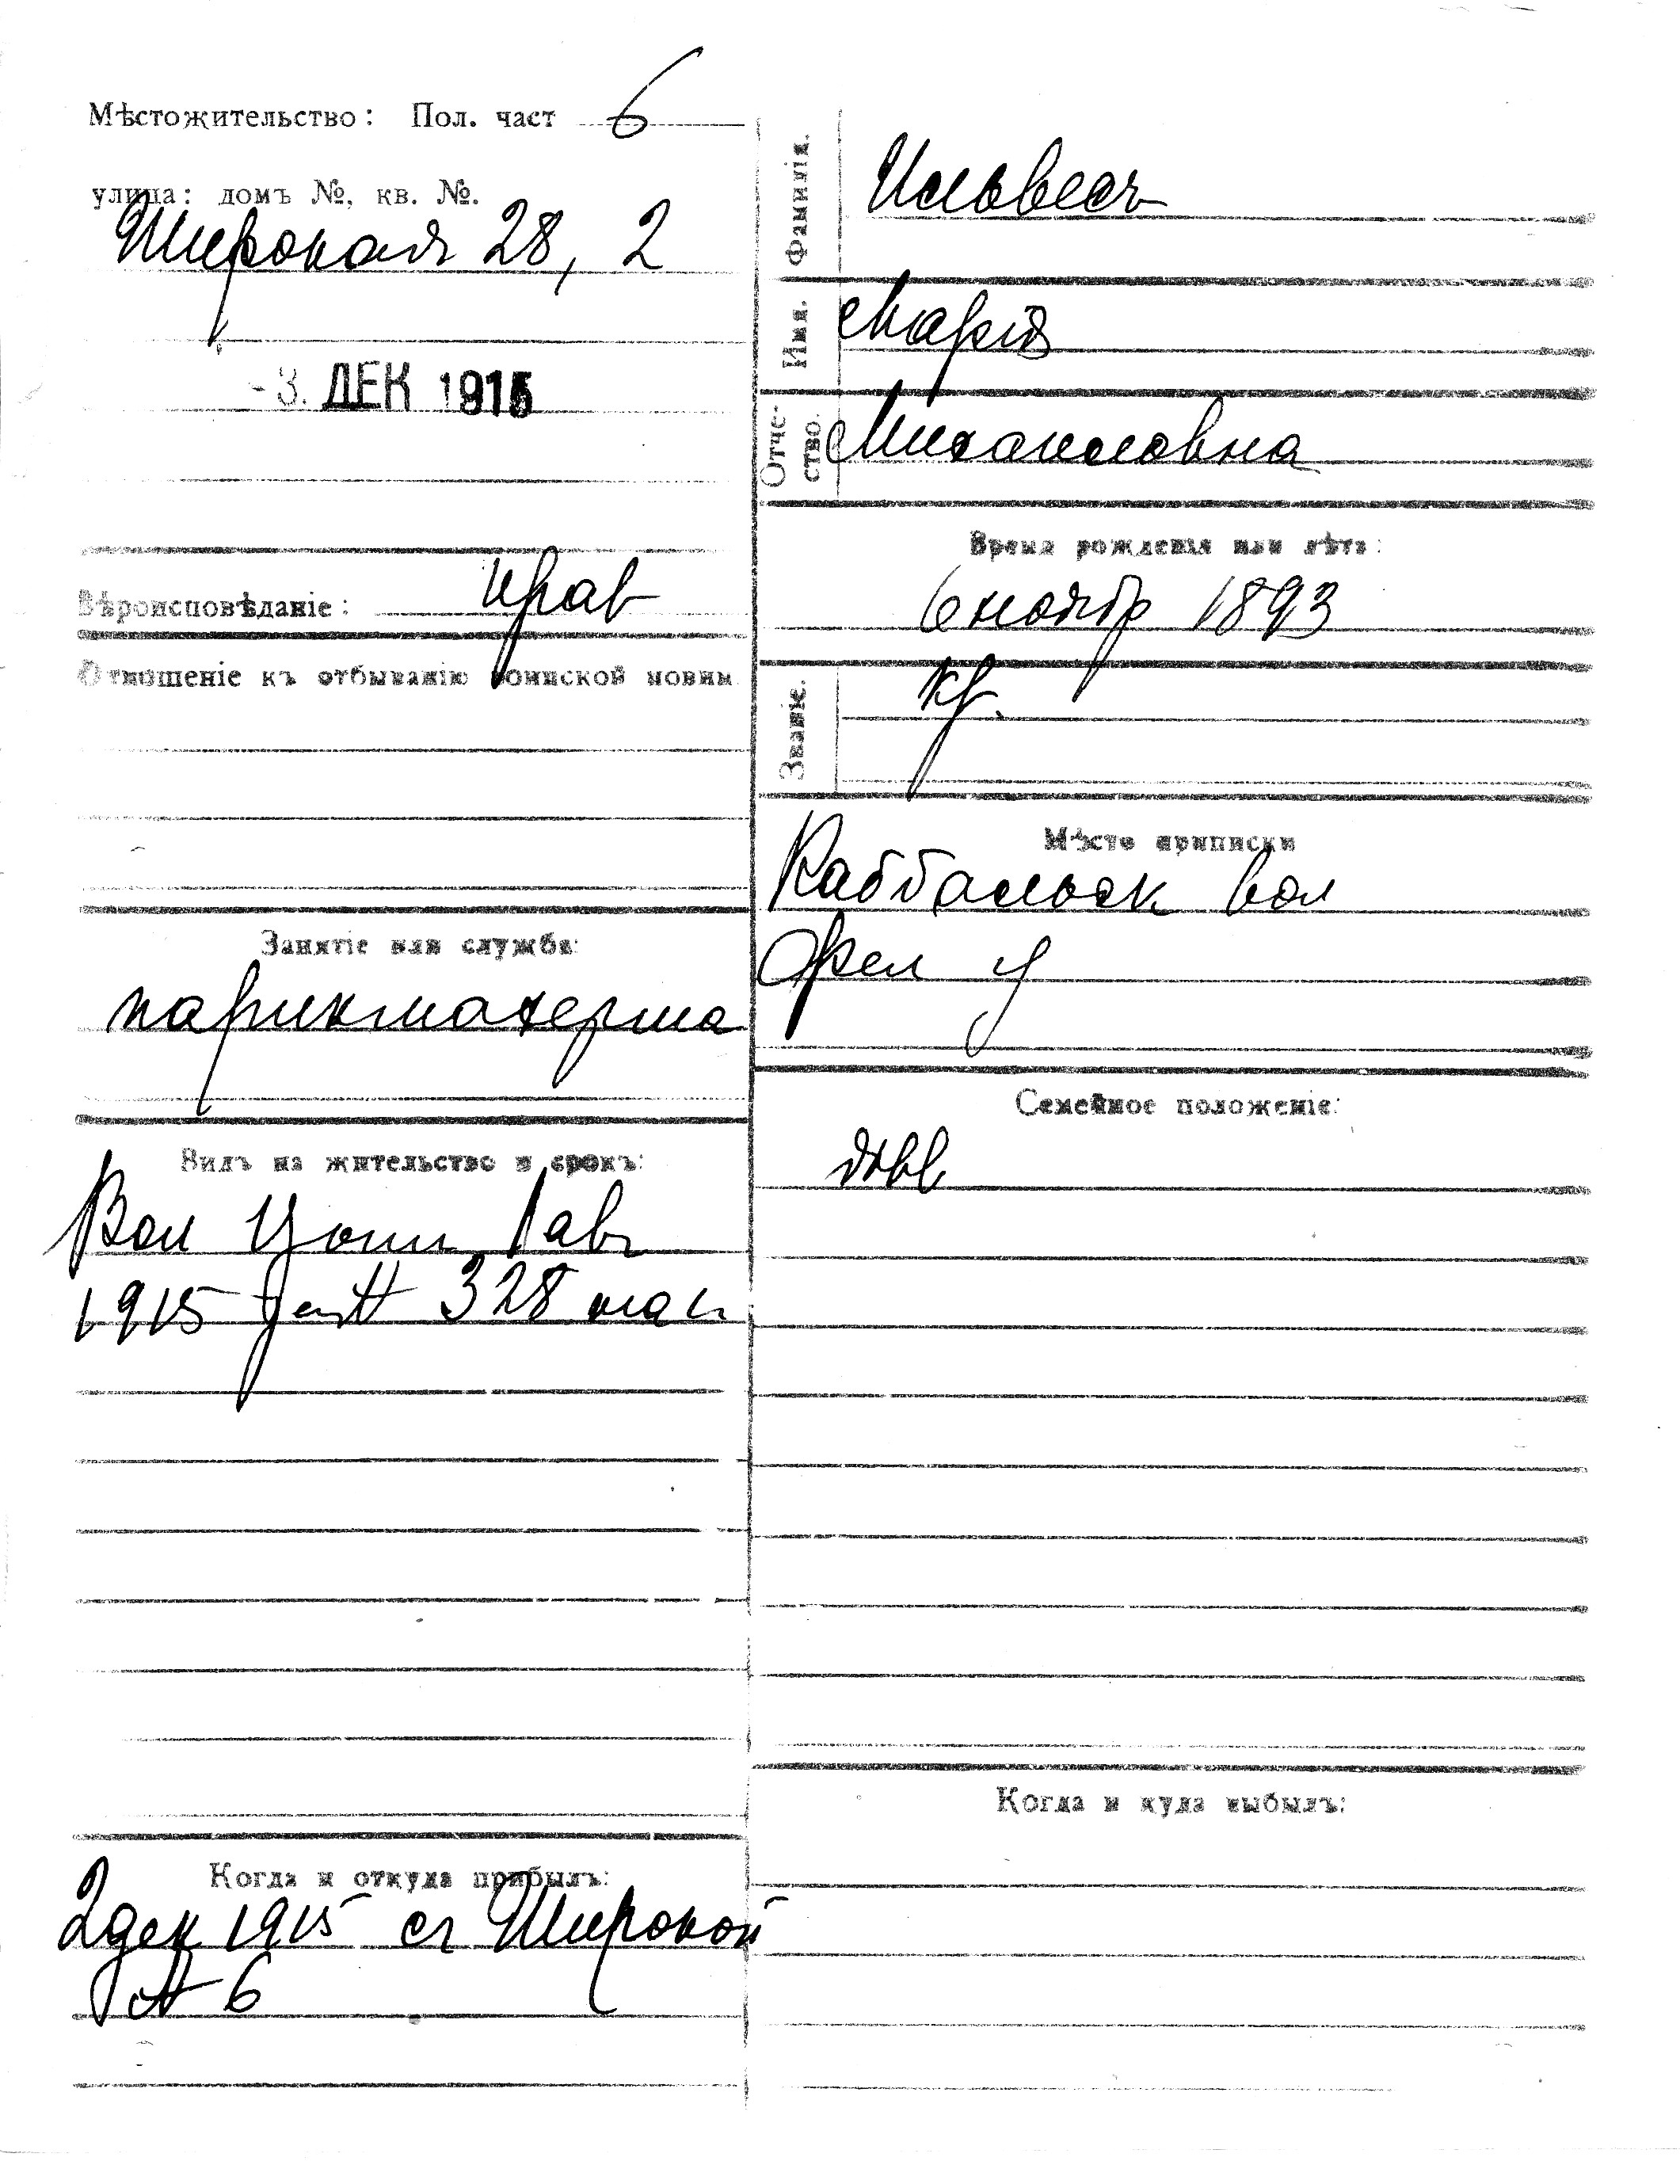 Мѣстожительство: Пол. част 6
улица: домъ №, кв. №.
Широкая 28, 2
-3. ДЕК 1915
Вѣроисповѣданіе: прав
Отношеніе къ отбыванію воинской повин.
Занятіе или служба:
парикмахерша
Видъ на жительство и срокъ:
Вол 1 авг
1915 328
Когда и откуда прибылъ:
2 дек 1915 съ Широкой
№ 6
Фамилія. Ильвесъ
Имя. Марія
Отче-
ство. Михайловна
Время рожденія или лѣта:
6 ноябр 1893
Званіе. кр.
Мѣсто приписки
Каббальск вол
Фел у
Семейное положеніе:
дѣв
Когда и куда выбылъ: